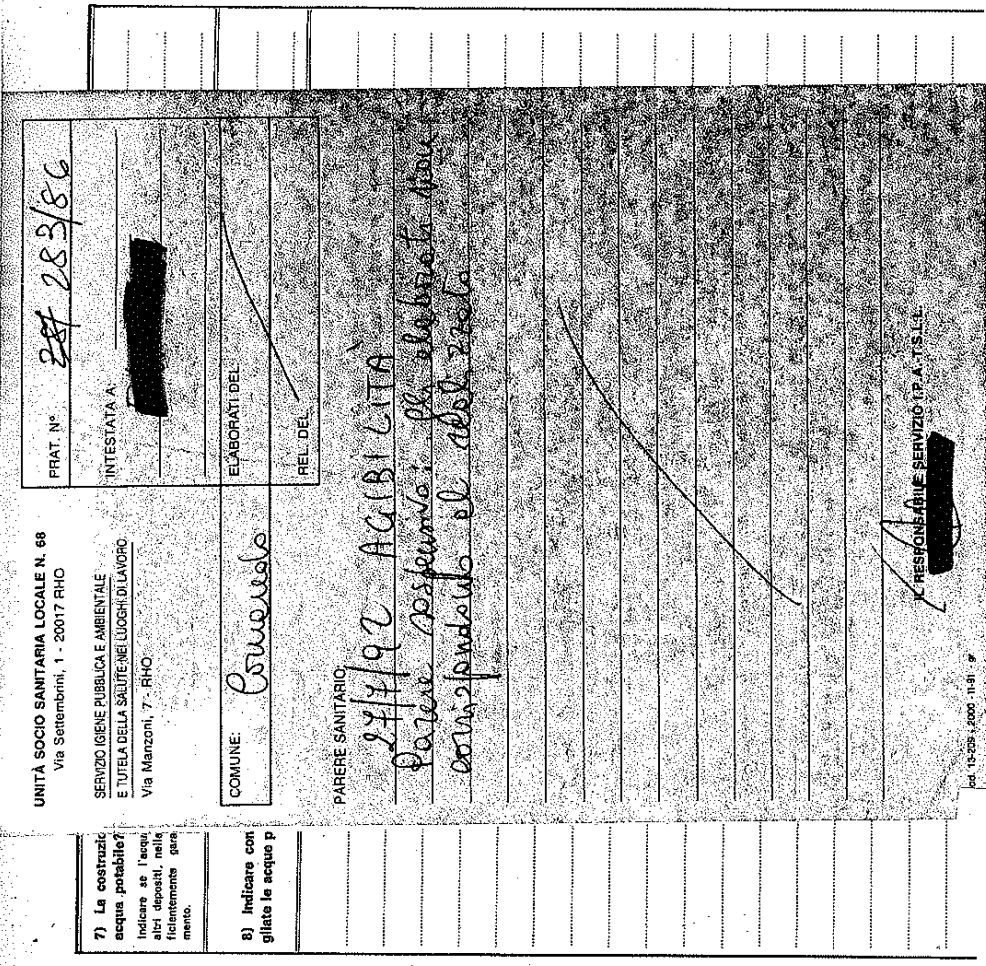 UNITÀ SOCIO SANITARIA LOCALE N. 68
Via Settembrini, 1 - 20017 RHO
SERVIZIO IGIENE PUBBLICA E AMBIENTALE
E TUTELA DELLA SALUTE NEI LUOGHI DI LAVORO
Via Manzoni, 7 - RHO
PRAT. N° 283/86
INTESTATA A
COMUNE: Cornaredo
ELABORATI DEL
REL. DEL
PARERE SANITARIO
27/7/92 AGIBILITÀ
Parere sospensivo: gli elaborati non
corrispondono al realizzato
IL RESPONSABILE SERVIZIO I.P.A.T.S.L.L.
cd. 13-209 - 2000 - 11-91
7) La costruzio
acqua potabile?
Indicare se l'acqu
altri depositi, nella
ficientemente gara
mento.
8) Indicare con
gliate le acque p